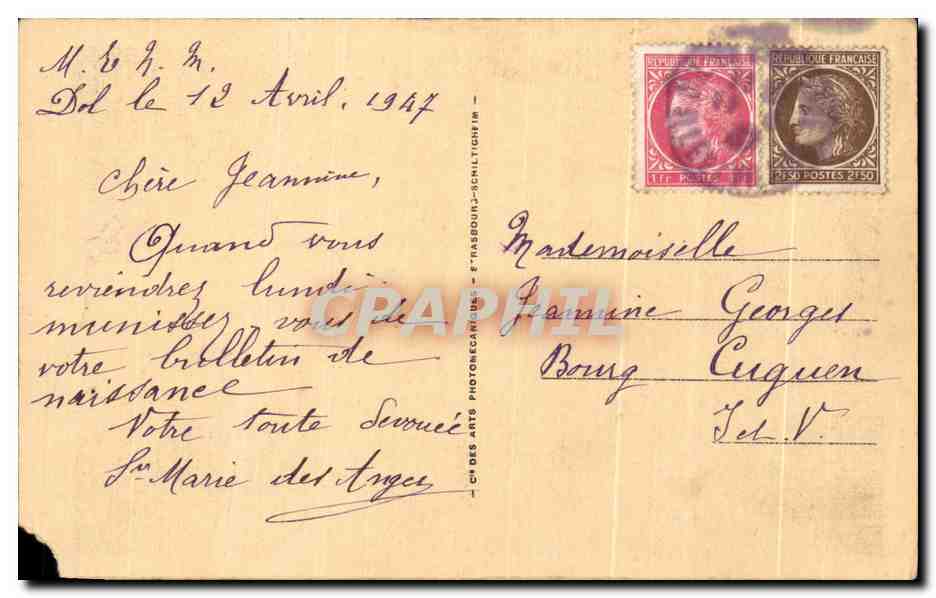 M. E. N. M.
Dol le 12 Avril. 1947
Chère Jeannine,
Quand vous
reviendrez lundi
munissez-vous de
votre bulletin de
naissance
Votre toute dévouée
Sr Marie des Anges
— Cie DES ARTS PHOTOMÉCANIQUES - STRASBOURG-SCHILTIGHEIM —
REPUBLIQUE FRANÇAISE
1 Fr POSTES 1 Fr
REPUBLIQUE FRANÇAISE
2F50 POSTES 2F50
Mademoiselle
Jeannine Georges
Bourg Cuguen
I et V.
CPAPHIL